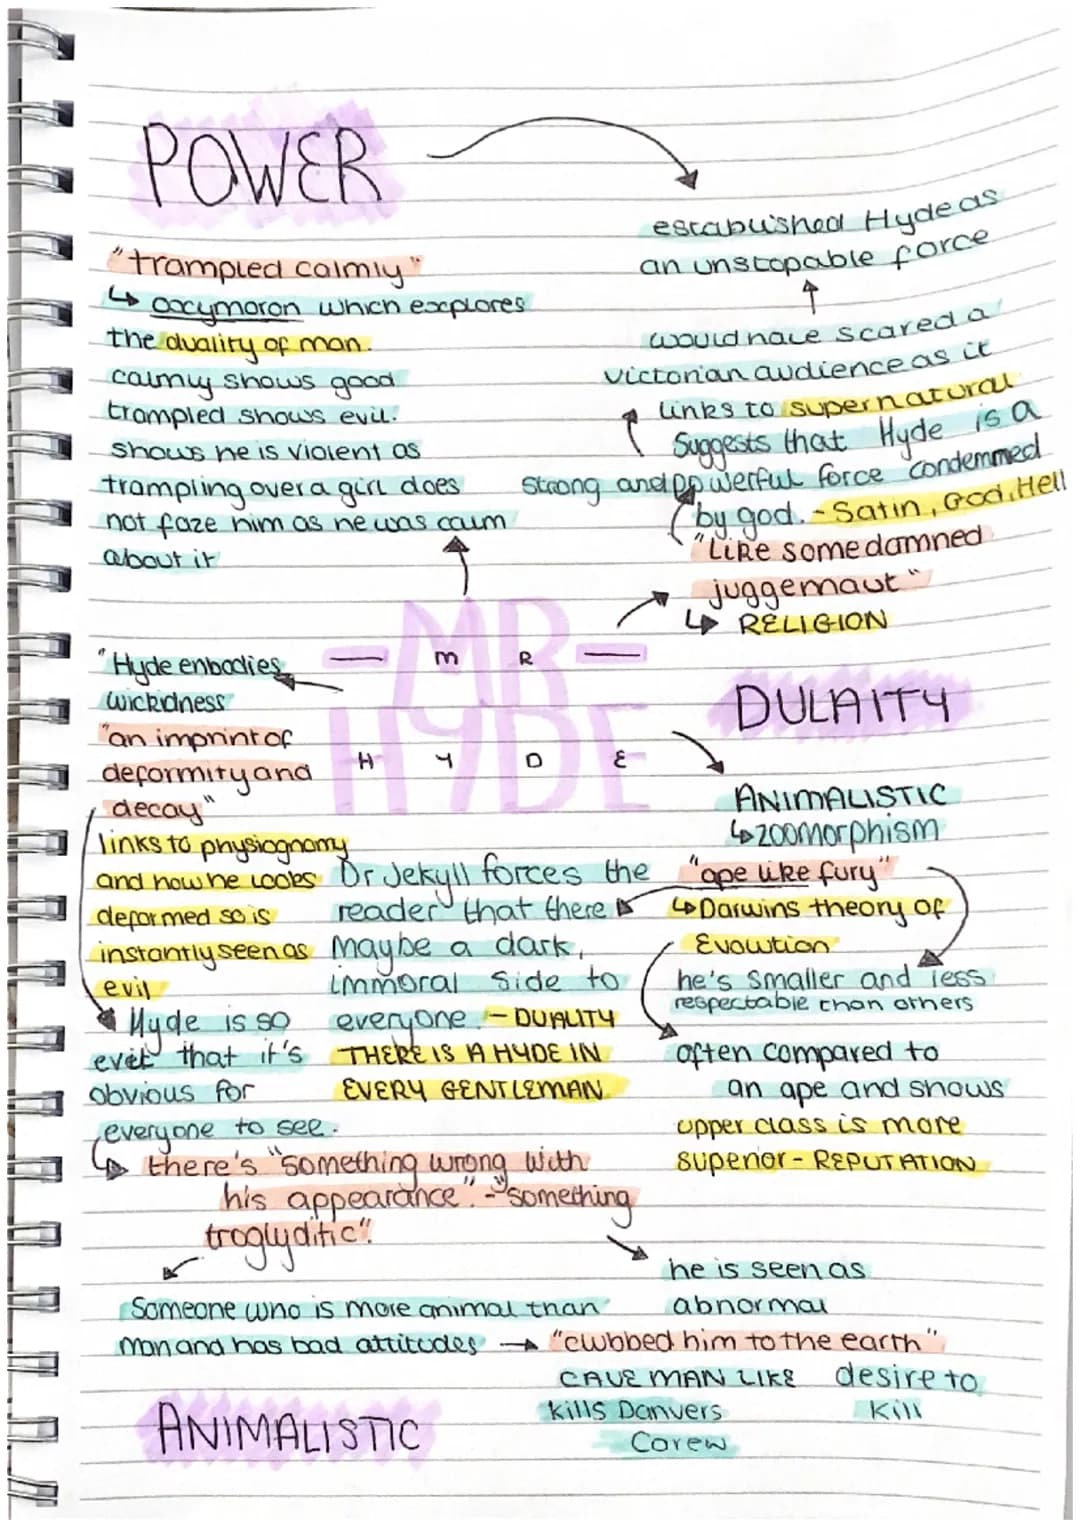 POWER
established Hyde as
an unstopable force
"trampled calmly"
↳ oxymoron which explores
the duality of man.
calmly shows good
trampled shows evil.
shows he is violent as
trampling over a girl does
not faze him as he was calm
about it
would have scared a
victorian audience as it
links to supernatural
Suggests that Hyde is a
strong and powerful force condemmed
by god. - Satin, God, Hell
"Like some damned
juggernaut"
↳ RELIGION
- MR -
HYDE
M R
H Y D E
"Hyde enbodies
wickidness
"an imprint of
deformity and
decay"
links to physiognomy
and how he looks
deformed so is
instantly seen as
evil
Hyde is so
evil that it's
obvious for
everyone to see.
DULAITY
ANIMALISTIC
↳ zoomorphism
"ape like fury"
↳ Darwins theory of
Evolution
he's smaller and less
respectable than others
often compared to
an ape and shows
upper class is more
superior - REPUTATION
Dr Jekyll forces the
reader that there
Maybe a dark,
immoral side to
everyone. - DUALITY
THERE IS A HYDE IN
EVERY GENTLEMAN
↳ there's "something wrong with
his appearance". - "something
troglyditic".
Someone who is more animal than
man and has bad attitudes → "clubbed him to the earth"
he is seen as
abnormal
CAVE MAN LIKE
kills Danvers
Carew
desire to
kill
ANIMALISTIC